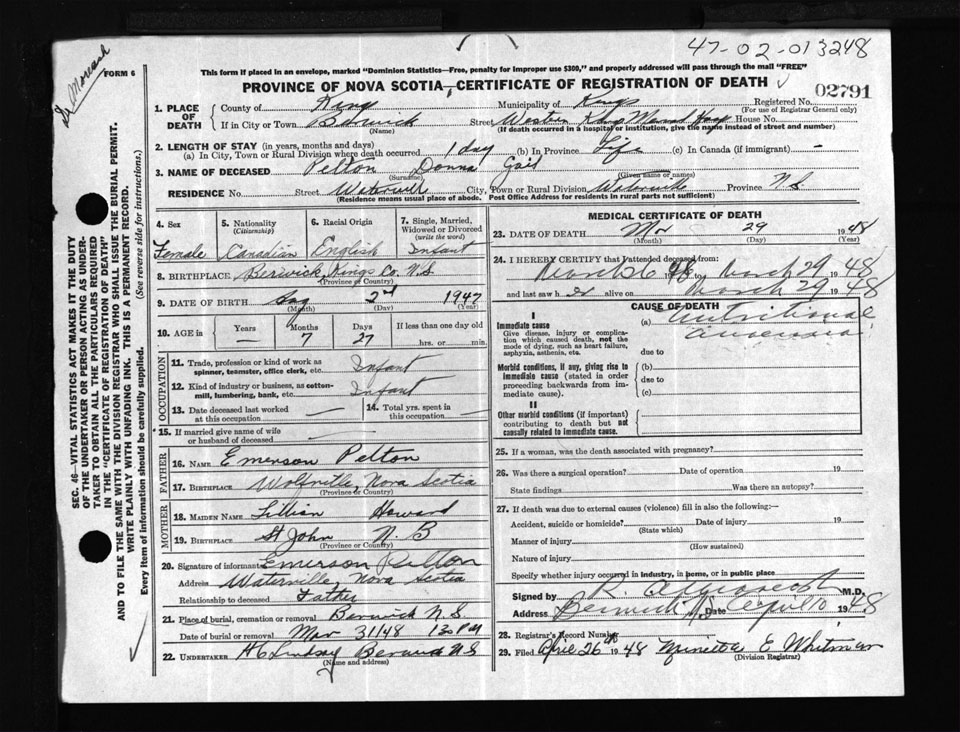 47-02-013248
FORM 6
This form if placed in an envelope, marked "Dominion Statistics—Free, penalty for improper use $300," and properly addressed will pass through the mail "FREE"
PROVINCE OF NOVA SCOTIA—CERTIFICATE OF REGISTRATION OF DEATH
02791
SEC. 46—VITAL STATISTICS ACT MAKES IT THE DUTY
OF THE UNDERTAKER OR PERSON ACTING AS UNDER-
TAKER TO OBTAIN ALL THE PARTICULARS REQUIRED
IN THE "CERTIFICATE OF REGISTRATION OF DEATH"
AND TO FILE THE SAME WITH THE DIVISION REGISTRAR WHO SHALL ISSUE THE BURIAL PERMIT.
WRITE PLAINLY WITH UNFADING INK. THIS IS A PERMANENT RECORD.
Every item of information should be carefully supplied. (See reverse side for instructions.)
1. PLACE OF DEATH
County of Kings Municipality of Kings Registered No.
(For use of Registrar General only)
If in City or Town Berwick Street Western Kings House No.
(Name) (If death occurred in a hospital or institution, give the name instead of street and number)
2. LENGTH OF STAY (in years, months and days)
(a) In City, Town or Rural Division where death occurred 1 day (b) In Province Life (c) In Canada (if immigrant) -
3. NAME OF DECEASED Pelton Donna Gail
(Surname) (Given name or names)
RESIDENCE No. Street Waterville City, Town or Rural Division Waterville Province N.S.
(Residence means usual place of abode. Post Office Address for residents in rural parts not sufficient)
4. Sex Female
5. Nationality (Citizenship) Canadian
6. Racial Origin English
7. Single, Married, Widowed or Divorced (write the word) Infant
8. BIRTHPLACE Berwick, Kings Co. N.S.
(Province or Country)
9. DATE OF BIRTH 2nd 1947
(Month) (Day) (Year)
10. AGE in Years — Months 7 Days 27 If less than one day old hrs. or min.
OCCUPATION
11. Trade, profession or kind of work as spinner, teamster, office clerk, etc. Infant
12. Kind of industry or business, as cotton-mill, lumbering, bank, etc. Infant
13. Date deceased last worked at this occupation —
14. Total yrs. spent in this occupation —
15. If married give name of wife or husband of deceased —
FATHER
16. NAME Emerson Pelton
17. BIRTHPLACE Wolfville, Nova Scotia
(Province or Country)
MOTHER
18. MAIDEN NAME Lillian Howard
19. BIRTHPLACE St John N.B
(Province or Country)
20. Signature of informant Emerson Pelton
Address Waterville, Nova Scotia
Relationship to deceased Father
21. Place of burial, cremation or removal Berwick N.S
Date of burial or removal Mar 31/48 130 PM
22. UNDERTAKER H C Lindsay Berwick N.S
(Name and address)
MEDICAL CERTIFICATE OF DEATH
23. DATE OF DEATH Mr 29 1948
(Month) (Day) (Year)
24. I HEREBY CERTIFY that I attended deceased from:
March 26 1948 to March 29 1948
and last saw h er alive on March 29 1948
CAUSE OF DEATH
I
Immediate cause
Give disease, injury or complication which caused death, not the mode of dying, such as heart failure, asphyxia, asthenia, etc.
(a) Nutritional
due to
Morbid conditions, if any, giving rise to immediate cause (stated in order proceeding backwards from immediate cause).
(b)
due to
(c)
II
Other morbid conditions (if important) contributing to death but not causally related to immediate cause.
25. If a woman, was the death associated with pregnancy?
26. Was there a surgical operation? Date of operation 19
State findings Was there an autopsy?
27. If death was due to external causes (violence) fill in also the following:—
Accident, suicide or homicide? Date of injury 19
(State which)
Manner of injury
(How sustained)
Nature of injury
Specify whether injury occurred in industry, in home, or in public place
Signed by R. M.D.
Address Berwick NS Date 1948
28. Registrar's Record Number
29. Filed April 26th 1948 E. Whitman
(Division Registrar)